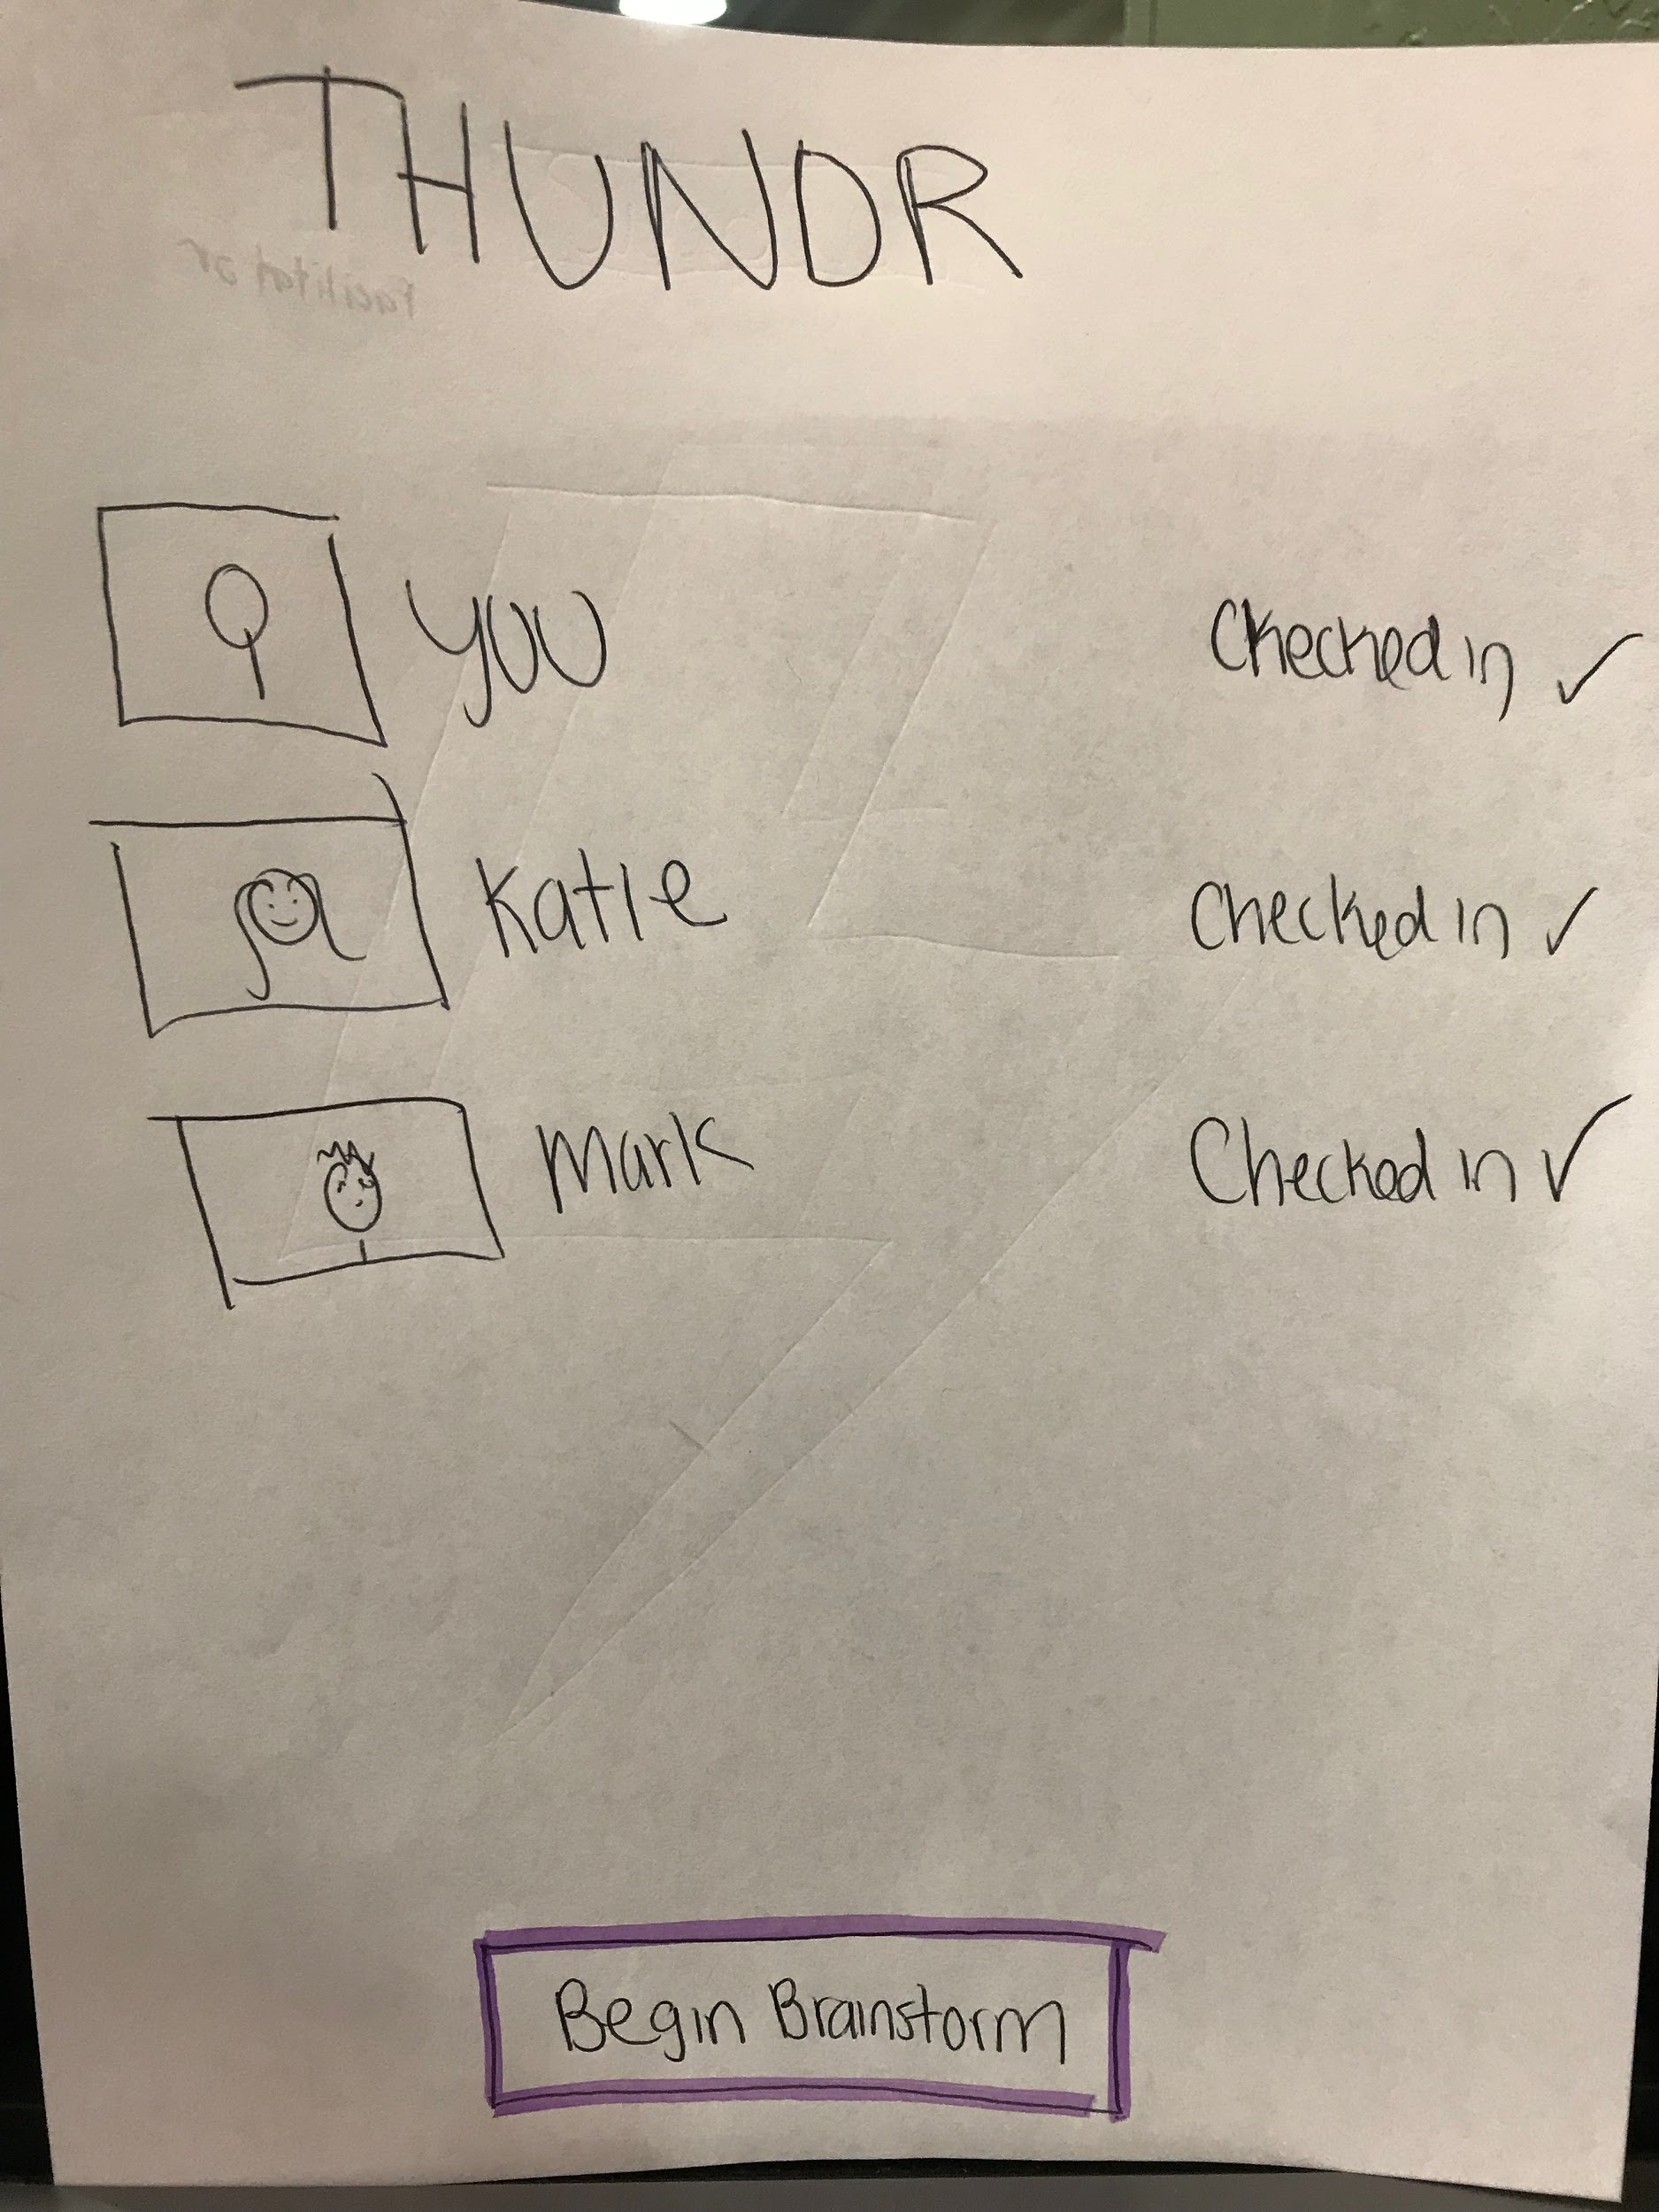 THUNDR
Facilitator
You Checked in ✓
Katie Checked in ✓
Mark Checked in ✓
Begin Brainstorm